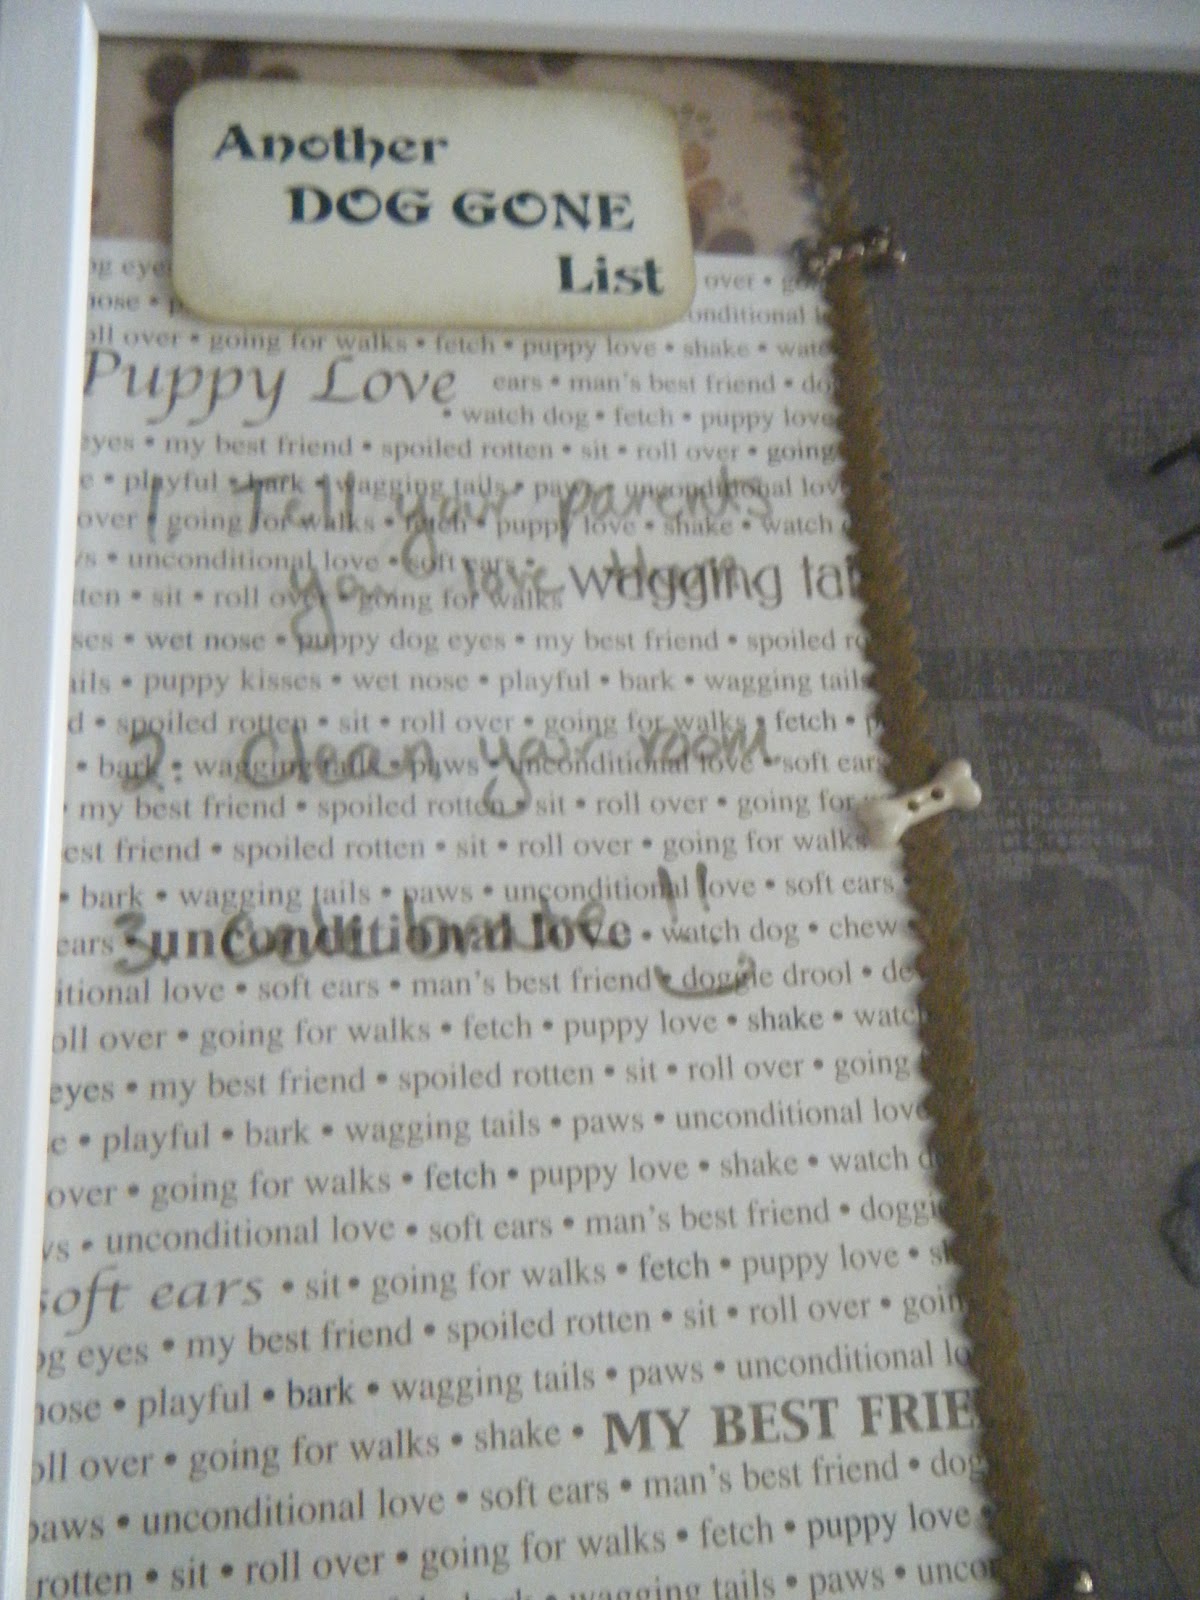 Another
DOG GONE
List
over •
onditional
oll over • going for walks • fetch • puppy love • shake •
Puppy Love ears • man's best friend •
• watch dog • fetch • puppy love
eyes • my best friend • spoiled rotten • sit • roll over • going
e • playful • bark • wagging tails • paws • unconditional lov
1. Tell your parents
over • going for walks • fetch • puppy love • shake • watch
s • unconditional love • soft ears •
you love them
wagging tai
tten • sit • roll over • going for walks
ses • wet nose • puppy dog eyes • my best friend • spoiled ro
ails • puppy kisses • wet nose • playful • bark • wagging tails
d • spoiled rotten • sit • roll over • going for walks • fetch • p
2. Clean your room
• bark • wagging tails • paws • unconditional love • soft ears
• my best friend • spoiled rotten • sit • roll over • going for
est friend • spoiled rotten • sit • roll over • going for walks
• bark • wagging tails • paws • unconditional love • soft ears
3. !!
ears • unconditional love • watch dog • chew
itional love • soft ears • man's best friend • doggie drool • de
oll over • going for walks • fetch • puppy love • shake • watch
eyes • my best friend • spoiled rotten • sit • roll over • going
e • playful • bark • wagging tails • paws • unconditional love
over • going for walks • fetch • puppy love • shake • watch d
ws • unconditional love • soft ears • man's best friend • doggi
soft ears • sit • going for walks • fetch • puppy love • s
og eyes • my best friend • spoiled rotten • sit • roll over • goin
nose • playful • bark • wagging tails • paws • unconditional lo
oll over • going for walks • shake • MY BEST FRIE
paws • unconditional love • soft ears • man's best friend • dog
rotten • sit • roll over • going for walks • fetch • puppy love •
wagging tails • paws • unco